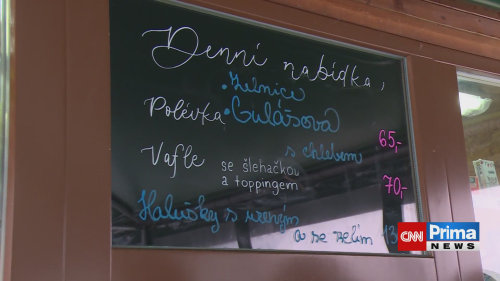 Denní nabídka,
•Zelnice
Polévka •Gulášova
s chlebem 65,-
Vafle se šlehačkou
a toppingem 70,-
Halušky s uzeným
a se zelím 13
CNN Prima
NEWS